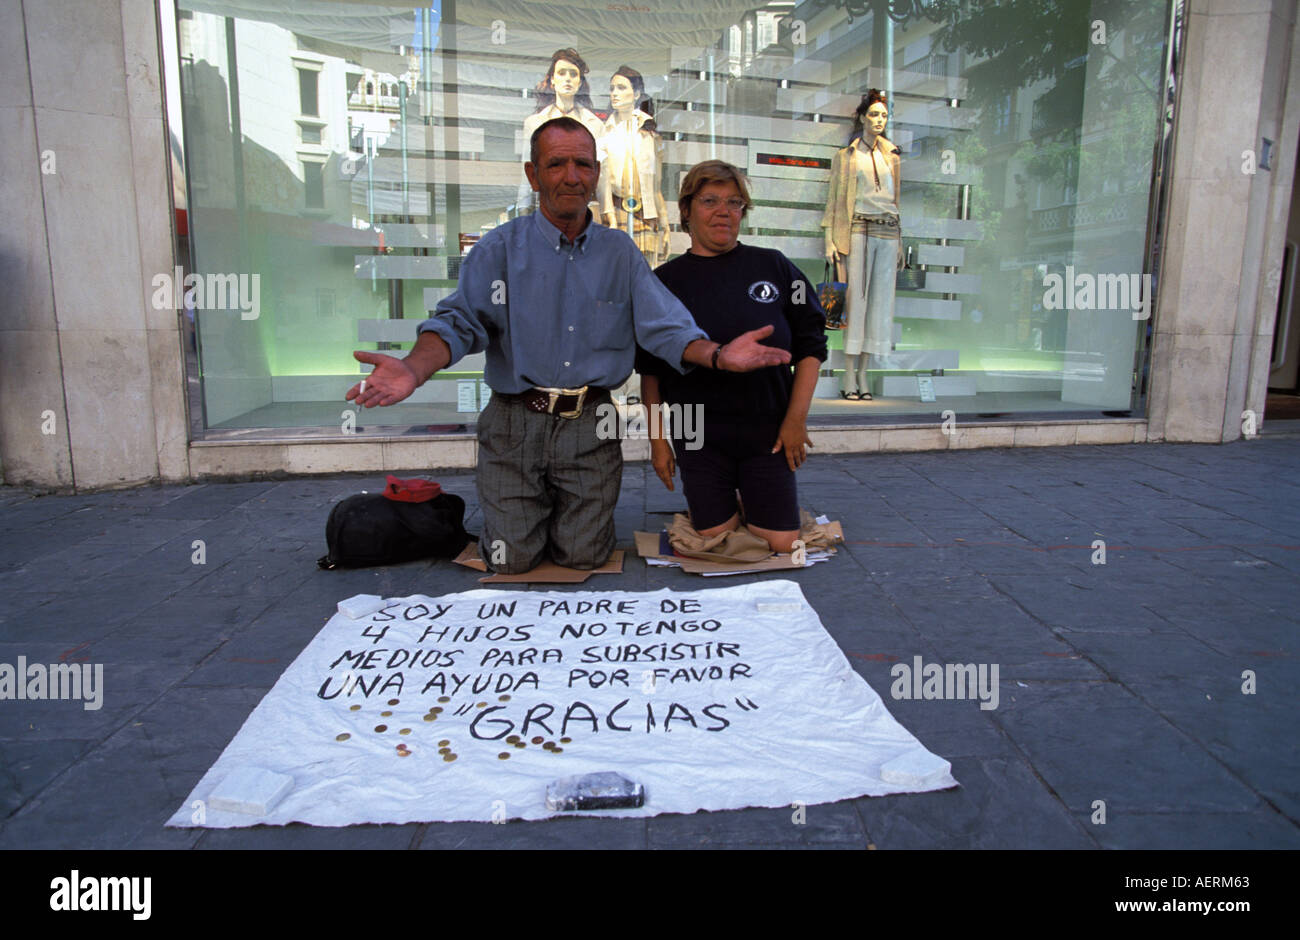 SOY UN PADRE DE
4 HIJOS NO TENGO
MEDIOS PARA SUBSISTIR
UNA AYUDA POR FAVOR
"GRACIAS"
alamy
a
alamy
Image ID: AERM63
www.alamy.com